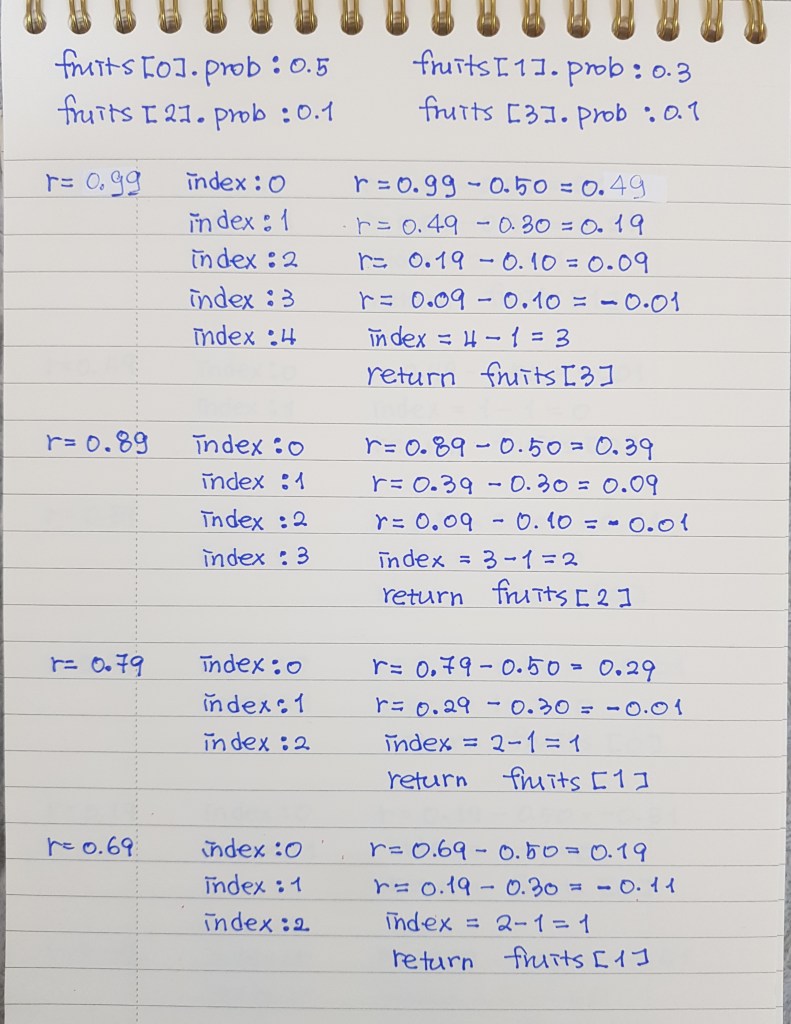 fruits[0].prob : 0.5 fruits[1].prob : 0.3
fruits[2].prob : 0.1 fruits[3].prob : 0.1
r= 0.99 index:0 r=0.99-0.50=0.49
index:1 r=0.49-0.30=0.19
index:2 r= 0.19-0.10=0.09
index:3 r= 0.09-0.10=-0.01
index:4 index = 4-1=3
return fruits[3]
r=0.89 index:0 r=0.89-0.50=0.39
index:1 r=0.39-0.30=0.09
index:2 r=0.09-0.10=-0.01
index:3 index = 3-1=2
return fruits[2]
r= 0.79 index:0 r= 0.79-0.50= 0.29
index:1 r= 0.29-0.30=-0.01
index:2 index = 2-1=1
return fruits[1]
r=0.69 index:0 r=0.69-0.50=0.19
index:1 r=0.19-0.30=-0.11
index:2 index = 2-1=1
return fruits[1]